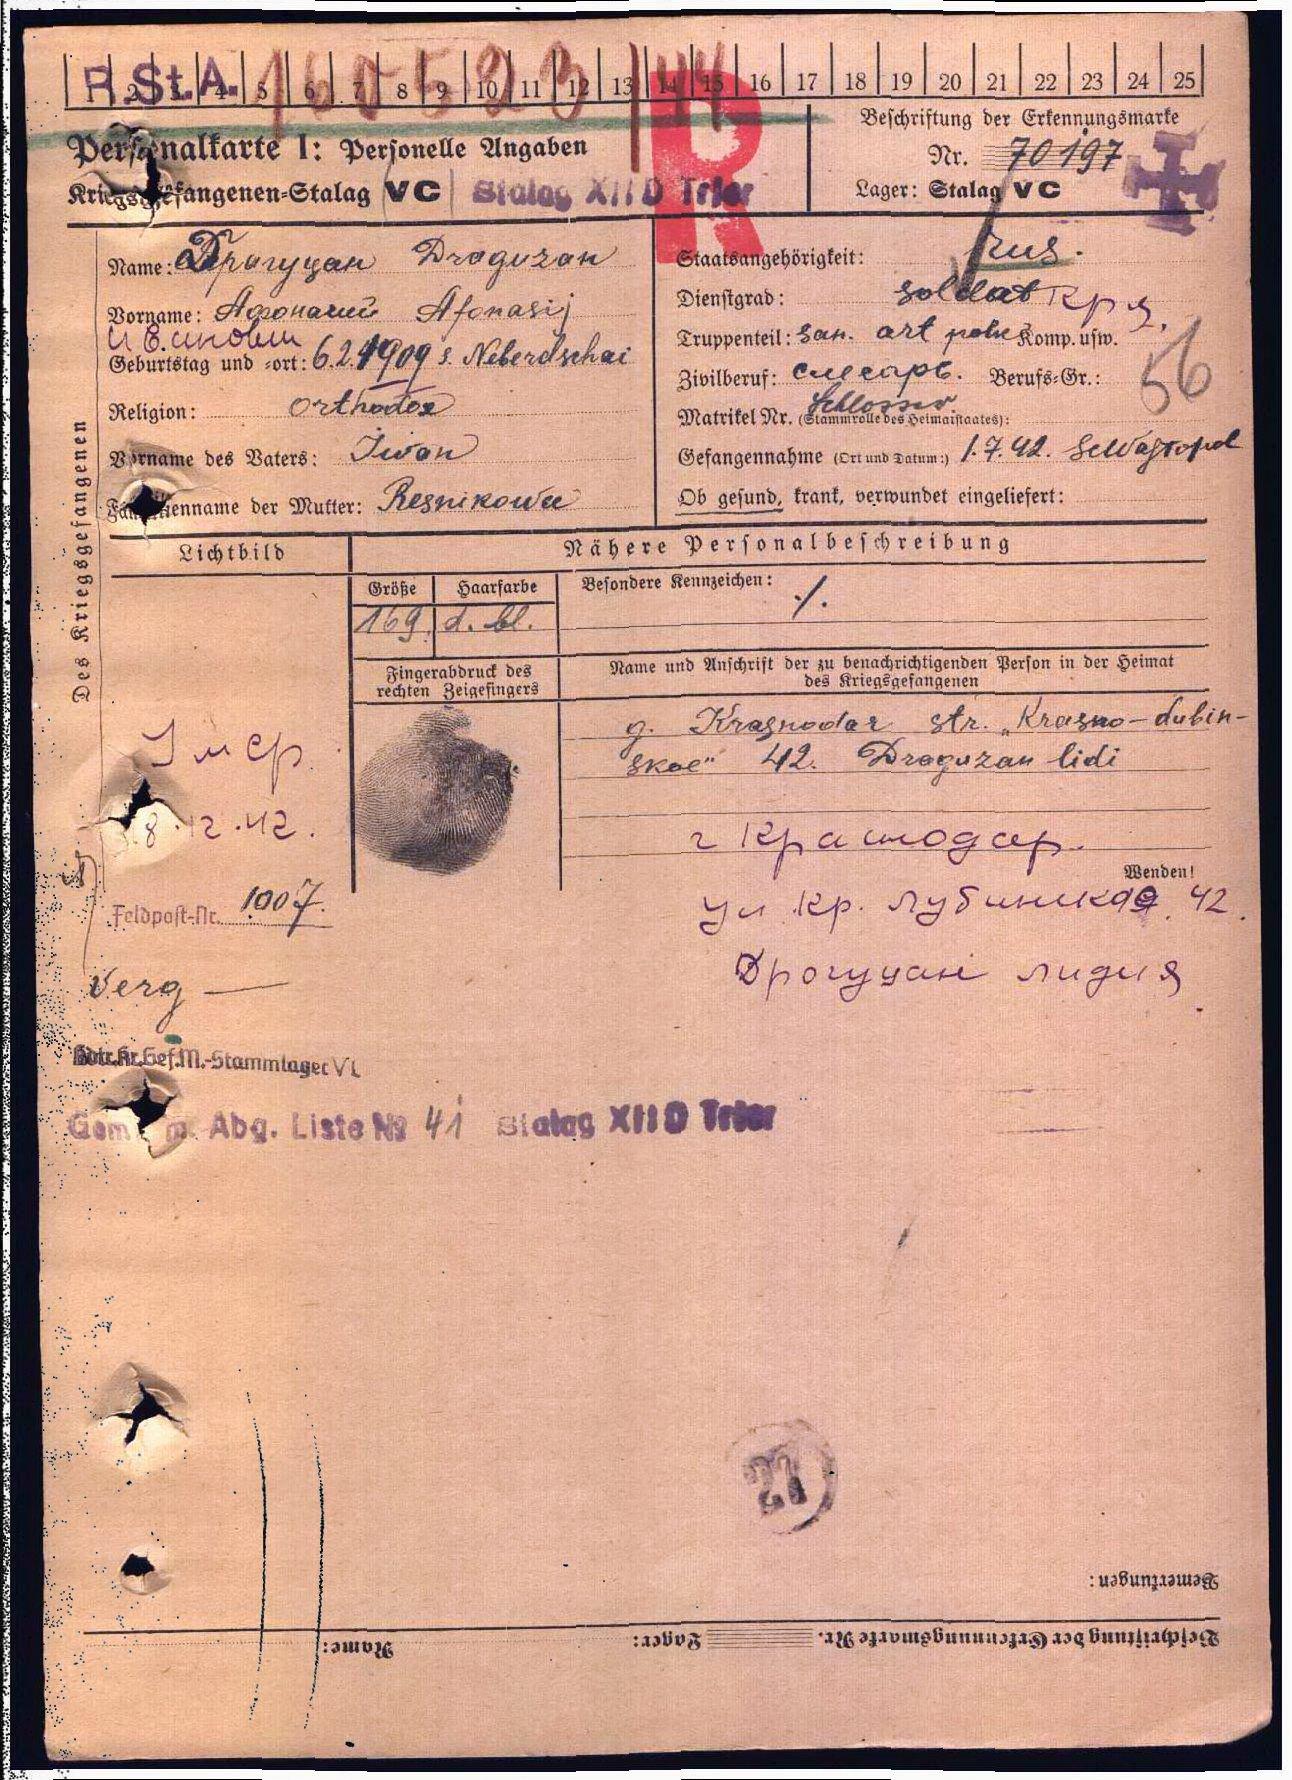 R.St.A. 160523/44
1 2 3 4 5 6 7 8 9 10 11 12 13 14 15 16 17 18 19 20 21 22 23 24 25
R
Personalkarte I: Personelle Angaben
Kriegsgefangenen-Stalag VC Stalag XII D Trier
Beschriftung der Erkennungsmarke
Nr. 70197
Lager: Stalag VC
Name: Драгуцан Draguzan
Vorname: Афонасий Afonasij
Geburtstag und -ort: 6.2.1909 s. Neberdschai
Religion: Orthodox
Vorname des Vaters: Iwan
Familienname der Mutter: Resnikowa
Staatsangehörigkeit: rus.
Dienstgrad: Soldat кр
Truppenteil: San. art polk Komp. usw.
Zivilberuf: слесарь. Berufs-Gr.: 56
Schlosser
Matrikel Nr. (Stammrolle des Heimatstaates):
Gefangennahme (Ort und Datum:) 1.7.42. Sewastopol
Ob gesund, krank, verwundet eingeliefert:
Des Kriegsgefangenen
Lichtbild
Nähere Personalbeschreibung
Größe Haarfarbe Besondere Kennzeichen: ./.
169 d. bl.
Fingerabdruck des
rechten Zeigefingers
Name und Anschrift der zu benachrichtigenden Person in der Heimat
des Kriegsgefangenen
g. Krasnodar str. „Krasno-dubin-
skoe" 42. Draguzan lidi
Умер.
8.12.42.
г Краснодар.
Wenden!
ул Кр. Лубинская 42.
Дрогуцан лидия
Feldpost-Nr. 1007
Verg —
Kdtr. Kr. Gef. M.-Stammlager V
Gem. Abg. Liste № 41 Stalag XII D Trier
22
Bemerkungen:
Beschriftung der Erkennungsmarke Nr. Lager: Name: